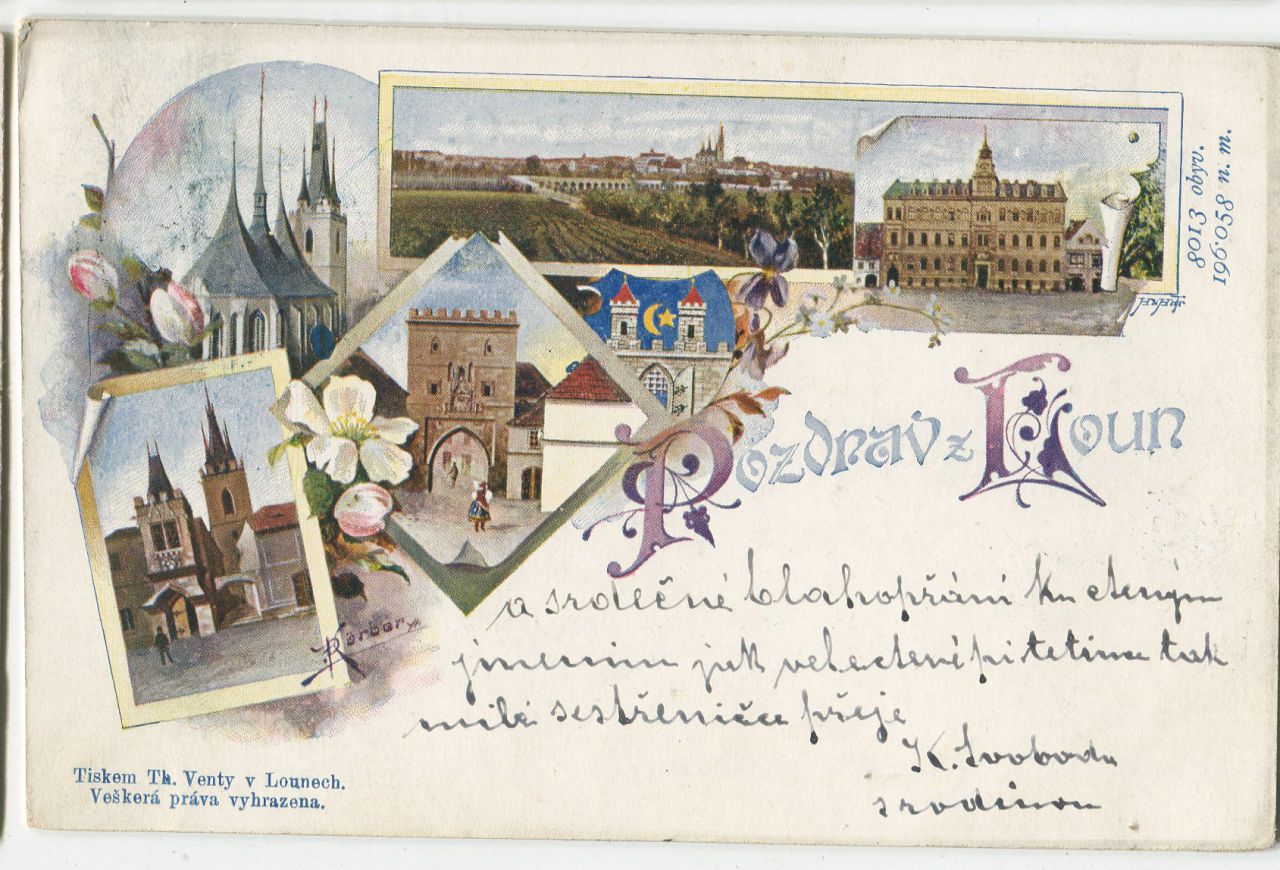 8013 obyv.
196·058 n. m.
Pozdrav z Loun
a srdečné blahopřání ku cteným
jmeninám jak velectěné pí tetince tak
milé sestřeničce přeje
K. Svoboda
s rodinou
Karbar
Tiskem Th. Venty v Lounech.
Veškerá práva vyhrazena.